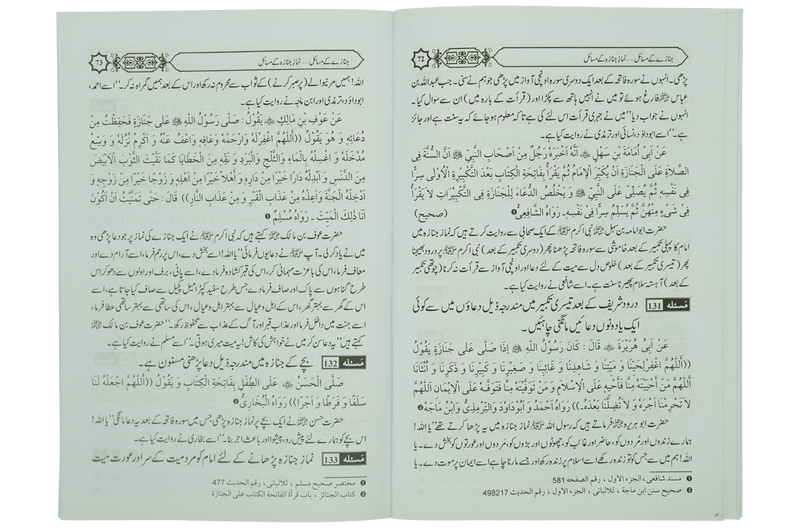 72
جنازے کے مسائل ... نماز جنازہ کے مسائل
پڑھی۔ انہوں نے سورہ فاتحہ کے بعد ایک دوسری سورہ اونچی آواز میں پڑھی جو ہم نے سنی۔ جب عبداللہ بن
عباس ﷜ فارغ ہوئے تو میں نے انہیں ہاتھ سے پکڑا اور (قرأت کے بارہ میں) ان سے سوال کیا۔
انہوں نے جواب دیا "میں نے جہری قرأت اس لئے کی ہے تاکہ تمہیں معلوم ہو جائے کہ یہ سنت ہے اور جائز
ہے۔" اسے ابوداؤد، نسائی اور ترمذی نے روایت کیا ہے۔
عَنْ اَبِیْ اُمَامَةَ بْنِ سَهْلٍ ﷜ اَنَّهُ اَخْبَرَهُ رَجُلٌ مِنْ اَصْحَابِ النَّبِیِّ ﷺ اَنَّ السُّنَّةَ فِی
الصَّلَاةِ عَلَی الْجَنَازَةِ اَنْ یُّکَبِّرَ الْاِمَامُ ثُمَّ یَقْرَأُ بِفَاتِحَةِ الْکِتَابِ بَعْدَ التَّکْبِیْرَةِ الْاُوْلٰی سِرًّا
فِیْ نَفْسِهٖ ثُمَّ یُصَلِّیْ عَلَی النَّبِیِّ ﷺ وَ یُخْلِصُ الدُّعَاءَ لِلْجَنَازَةِ فِی التَّکْبِیْرَاتِ لاَ یَقْرَأُ
فِیْ شَیْءٍ مِنْهُنَّ ثُمَّ یُسَلِّمُ سِرًّا فِیْ نَفْسِهٖ۔ رَوَاهُ الشَّافِعِیُّ ❶ (صحیح)
حضرت ابوامامہ بن سہل ﷜ نبی اکرم ﷺ کے ایک صحابی سے روایت کرتے ہیں کہ نماز جنازہ میں
امام کا پہلی تکبیر کے بعد خاموشی سے سورہ فاتحہ پڑھنا پھر (دوسری تکبیر کے بعد) نبی اکرم ﷺ پر درود بھیجنا
پھر (تیسری تکبیر کے بعد) خلوص دل سے میت کے لئے دعا کرنا اور اونچی آواز سے قرأت نہ کرنا (چوتھی تکبیر
کے بعد) آہستہ سلام پھیرنا سنت ہے۔ اسے شافعی نے روایت کیا ہے۔
مسئلہ 131 درود شریف کے بعد تیسری تکبیر میں مندرجہ ذیل دعاؤں میں سے کوئی
ایک یا دونوں دعائیں مانگنی چاہئیں۔
عَنْ اَبِیْ هُرَیْرَةَ ﷜ قَالَ: کَانَ رَسُوْلُ اللّٰهِ ﷺ اِذَا صَلّٰی عَلٰی جَنَازَةٍ یَقُوْلُ
((اَللّٰهُمَّ اغْفِرْ لِحَیِّنَا وَ مَیِّتِنَا وَ شَاهِدِنَا وَ غَائِبِنَا وَ صَغِیْرِنَا وَ کَبِیْرِنَا وَ ذَکَرِنَا وَ اُنْثَانَا
اَللّٰهُمَّ مَنْ اَحْیَیْتَهٗ مِنَّا فَاَحْیِهٖ عَلَی الْاِسْلَامِ وَ مَنْ تَوَفَّیْتَهٗ مِنَّا فَتَوَفَّهٗ عَلَی الْاِیْمَانِ اَللّٰهُمَّ
لاَ تَحْرِمْنَا اَجْرَهٗ وَ لاَ تُضِلَّنَا بَعْدَهٗ۔)) رَوَاهُ اَحْمَدُ وَ اَبُوْدَاوٗدَ وَ التِّرْمِذِیُّ وَ ابْنُ مَاجَهْ ❷
حضرت ابوہریرہ ﷜ فرماتے ہیں کہ رسول اللہ ﷺ نماز جنازہ میں یہ پڑھا کرتے تھے "یا اللہ!
ہمارے زندوں اور مُردوں کو، حاضر اور غائب کو، چھوٹوں اور بڑوں کو، مردوں اور عورتوں کو بخش دے۔ یا
اللہ! ہم میں سے جس کو تو زندہ رکھے اسے اسلام پر زندہ رکھ اور جسے مارنا چاہے اسے ایمان پر موت دے۔ یا
❶ مسند شافعی ، الجزء الاول ، رقم الصفحه 581
❷ صحیح سنن ابن ماجة ، للالبانی ، الجزء الاول ، رقم الحدیث 498217
73
جنازے کے مسائل ... نماز جنازہ کے مسائل
اللہ! ہمیں مرنیوالے (پر صبر کرنے) کے ثواب سے محروم نہ رکھ اور اس کے بعد ہمیں گمراہ نہ کر۔" اسے احمد،
ابوداؤد، ترمذی اور ابن ماجہ نے روایت کیا ہے۔
عَنْ عَوْفِ بْنِ مَالِکٍ ﷜ یَقُوْلُ: صَلّٰی رَسُوْلُ اللّٰهِ ﷺ عَلٰی جَنَازَةٍ فَحَفِظْتُ مِنْ
دُعَائِهٖ وَ هُوَ یَقُوْلُ ((اَللّٰهُمَّ اغْفِرْلَهٗ وَارْحَمْهُ وَعَافِهٖ وَاعْفُ عَنْهُ وَ اَکْرِمْ نُزُلَهٗ وَ وَسِّعْ
مُدْخَلَهٗ وَ اغْسِلْهُ بِالْمَاءِ وَ الثَّلْجِ وَ الْبَرَدِ وَ نَقِّهٖ مِنَ الْخَطَایَا کَمَا نَقَّیْتَ الثَّوْبَ الْاَبْیَضَ
مِنَ الدَّنَسِ وَ اَبْدِلْهُ دَارًا خَیْرًا مِنْ دَارِهٖ وَ اَهْلاً خَیْرًا مِنْ اَهْلِهٖ وَ زَوْجًا خَیْرًا مِنْ زَوْجِهٖ وَ
اَدْخِلْهُ الْجَنَّةَ وَ اَعِذْهُ مِنْ عَذَابِ الْقَبْرِ وَ مِنْ عَذَابِ النَّارِ)) قَالَ: حَتّٰی تَمَنَّیْتُ اَنْ اَکُوْنَ
اَنَا ذٰلِکَ الْمَیِّتَ۔ رَوَاهُ مُسْلِمٌ ❶
حضرت عوف بن مالک ﷜ کہتے ہیں کہ نبی اکرم ﷺ نے ایک جنازے کی نماز پر جو دعا پڑھی وہ
میں نے یاد کر لی۔ آپ ﷺ نے دعا یوں فرمائی "یا اللہ! اسے بخش دے، اس پر رحم فرما، اسے آرام دے اور
معاف فرما، اس کی باعزت مہمانی کر، اس کی قبر کشادہ فرما دے، اسے پانی، برف اور اولوں سے دھو کر اس
طرح گناہوں سے پاک اور صاف فرما دے جس طرح سفید کپڑا میل کچیل سے صاف کیا جاتا ہے، اسے
اس کے گھر سے بہتر گھر، اس کے اہل و عیال سے بہتر اہل و عیال، اس کی ساتھی سے بہتر ساتھی عطا فرما،
اسے جنت میں داخل فرما اور عذاب قبر اور آگ کے عذاب سے محفوظ رکھ۔" حضرت عوف بن مالک ﷜
کہتے ہیں "یہ دعا سن کر میں نے خواہش کی کاش یہ میت میری ہوتی۔" اسے مسلم نے روایت کیا ہے۔
مسئلہ 132 بچے کے جنازہ میں مندرجہ ذیل دعا پڑھنی مسنون ہے۔
صَلَّی الْحَسَنُ ﷜ عَلَی الطِّفْلِ بِفَاتِحَةِ الْکِتَابِ وَ یَقُوْلُ ((اَللّٰهُمَّ اجْعَلْهُ لَنَا
سَلَفًا وَ فَرَطًا وَ اَجْرًا)) رَوَاهُ الْبُخَارِیُّ ❷
حضرت حسن ﷜ نے ایک بچے پر نماز جنازہ پڑھی جس میں سورہ فاتحہ کے بعد یہ دعا مانگی "یا اللہ!
اس بچے کو ہمارے لئے پیش رو، پیشوا اور باعث اجر بنا۔" اسے بخاری نے روایت کیا ہے۔
مسئلہ 133 نماز جنازہ پڑھانے کے لئے امام کو مرد میت کے سر اور عورت میت
❶ مختصر صحیح مسلم ، للالبانی ، رقم الحدیث 477
❷ کتاب الجنائز ، باب قرأة الفاتحة الکتاب علی الجنازة